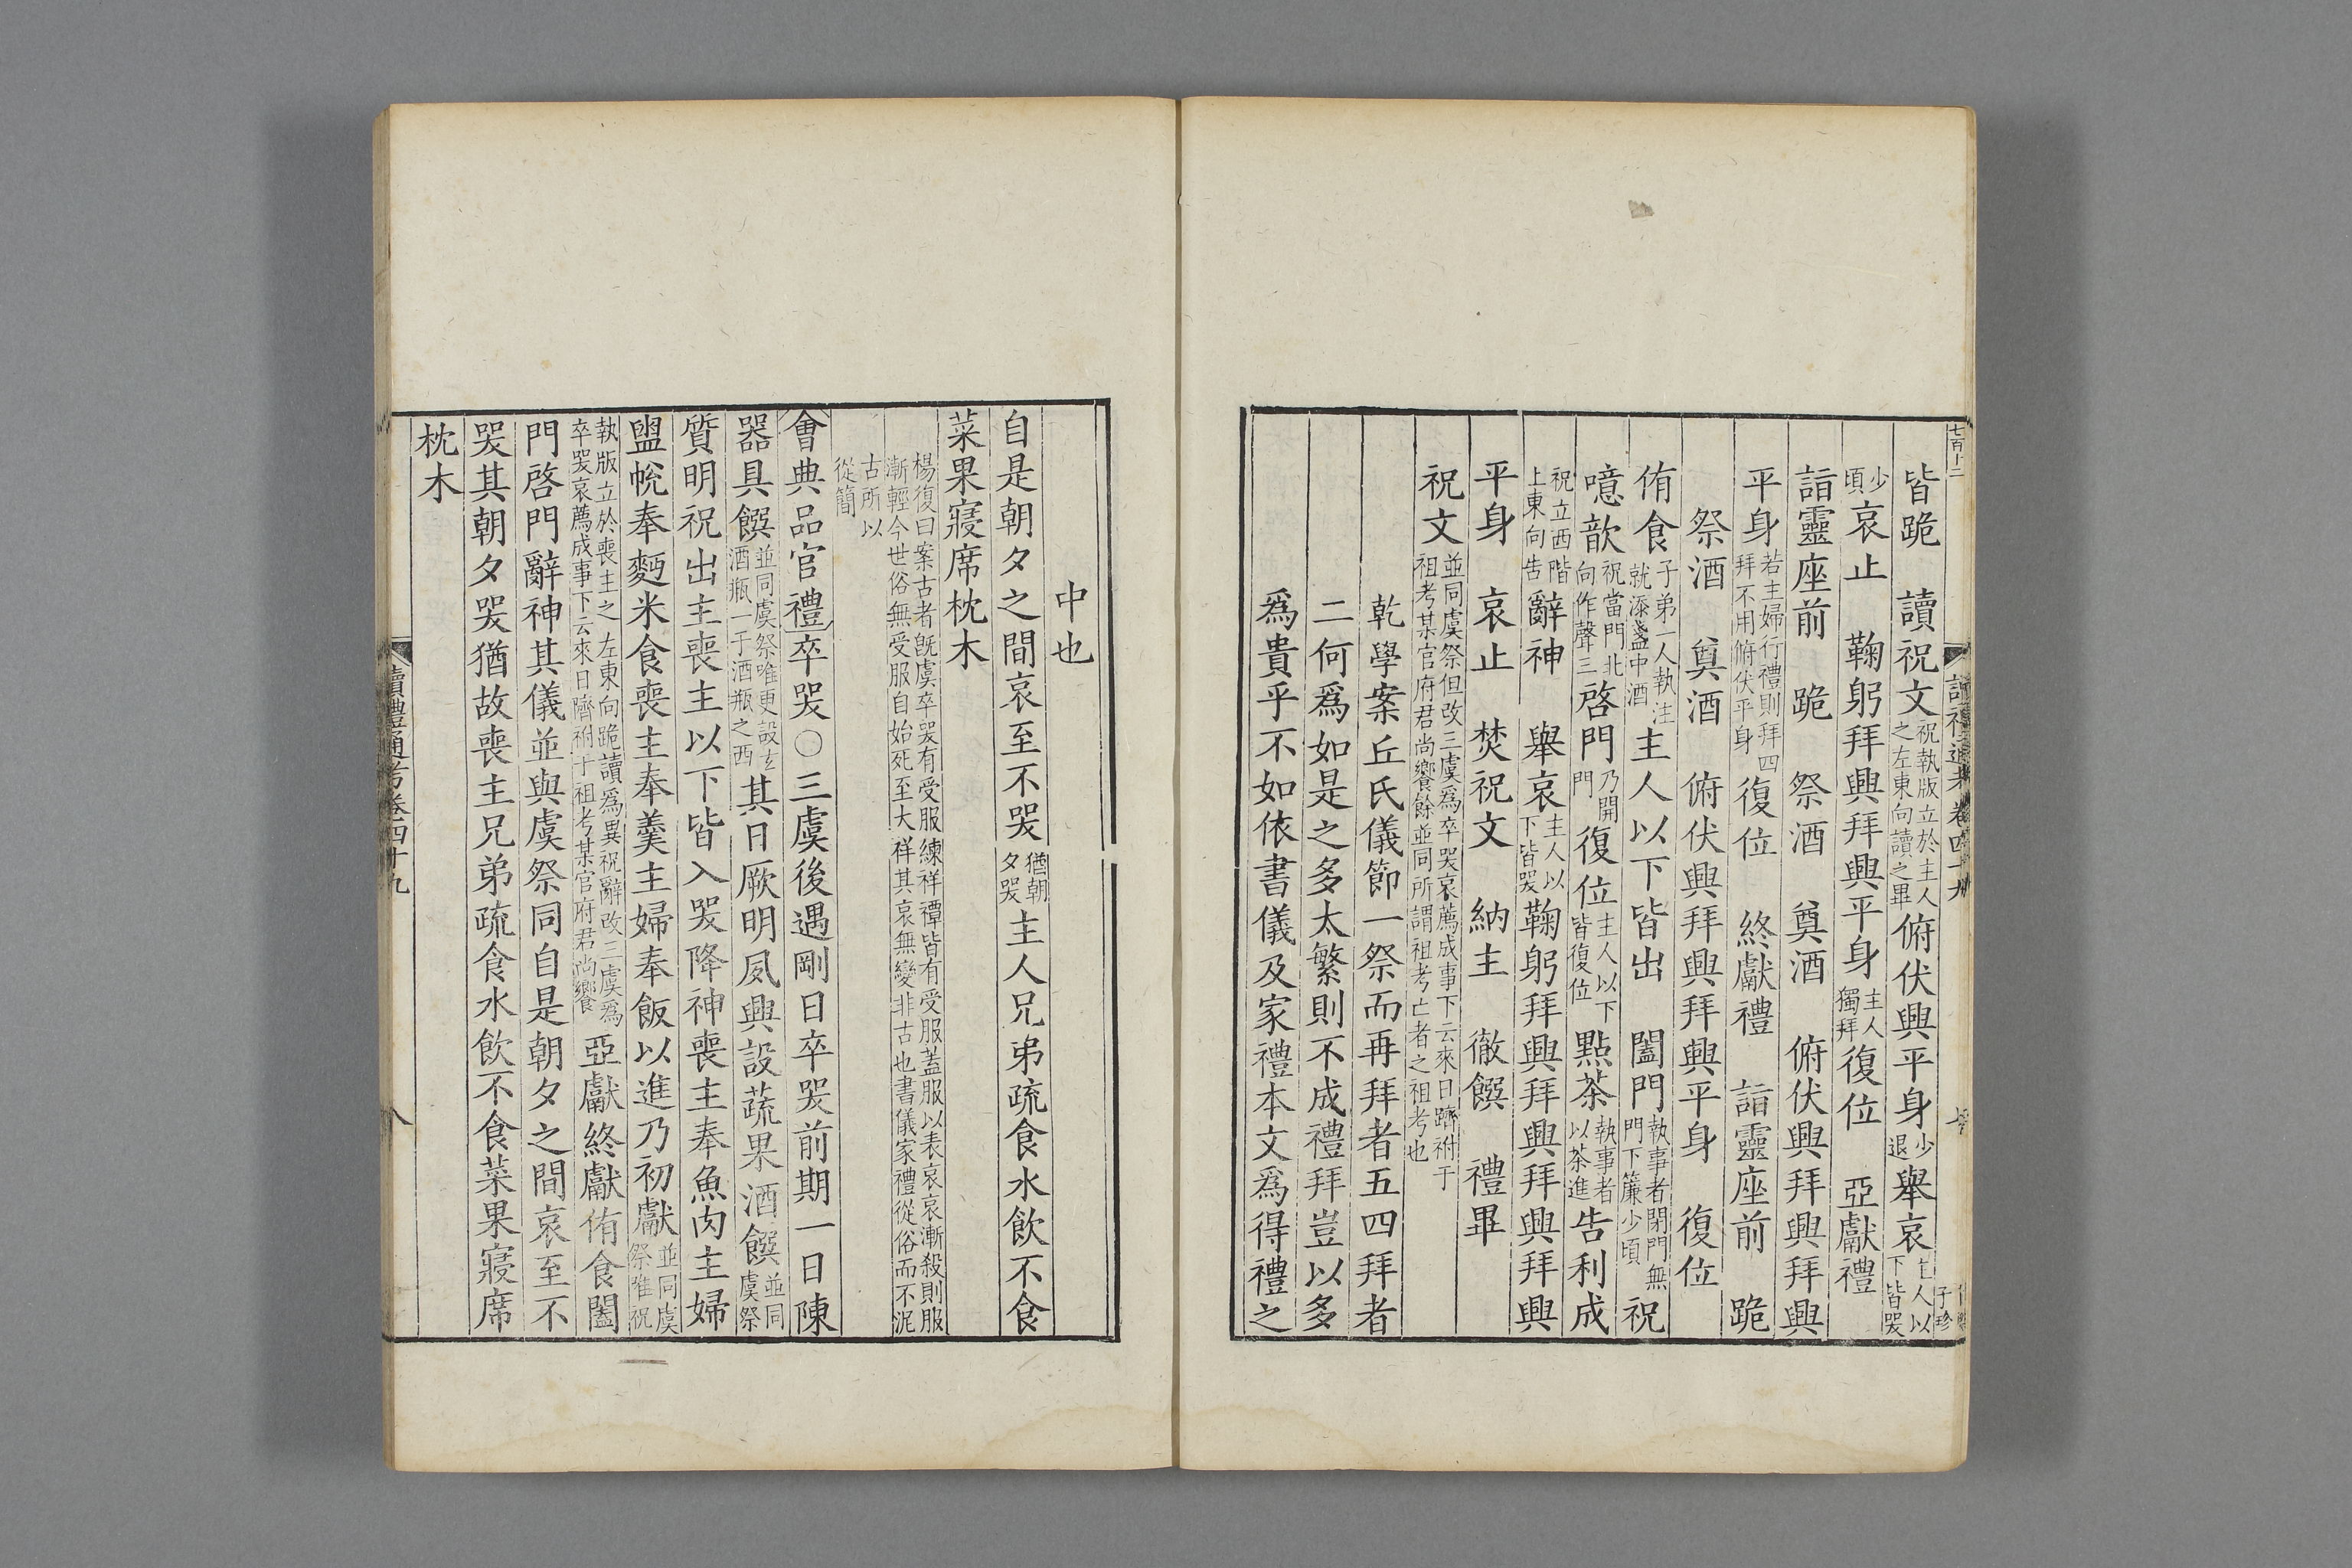 七百十二
皆跪　讀祝文祝執版立於主人之左東向讀之畢俯伏興平身少退舉哀主人以下皆哭
少頃哀止　鞠躬拜興拜興平身主人獨拜復位　亞獻禮
詣靈座前　跪　祭酒　奠酒　俯伏興拜興拜興
平身若主婦行禮則拜四拜不用俯伏平身復位　終獻禮　詣靈座前　跪
祭酒　奠酒　俯伏興拜興拜興平身　復位
侑食子弟一人執注就添盞中酒主人以下皆出　闔門執事者閉門無門下簾少頃祝
噫歆祝當門北向作聲三啓門乃開門復位主人以下皆復位點茶執事者以茶進告利成
祝立西階上東向告辭神　舉哀主人以下皆哭鞠躬拜興拜興拜興拜興
平身　哀止　焚祝文　納主　徹饌　禮畢
祝文並同虞祭但改三虞為卒哭哀薦成事下云來日躋祔于祖考某官府君尚饗餘並同所謂祖考亡者之祖考也
乾學案丘氏儀節一祭而再拜者五四拜者
二何爲如是之多太繁則不成禮拜豈以多
爲貴乎不如依書儀及家禮本文爲得禮之
中也
自是朝夕之間哀至不哭猶朝夕哭主人兄弟疏食水飲不食
菜果寢席枕木
楊復曰案古者旣虞卒哭有受服練祥禫皆有受服蓋服以表哀哀漸殺則服
漸輕今世俗無受服自始死至大祥其哀無變非古也書儀家禮從俗而不泥
古所以
從簡
會典品官禮卒哭〇三虞後遇剛日卒哭前期一日陳
器具饌並同虞祭唯更設玄酒瓶一于酒瓶之西其日厥明夙興設蔬果酒饌並同虞祭
質明祝出主喪主以下皆入哭降神喪主奉魚肉主婦
盥帨奉麪米食喪主奉羹主婦奉飯以進乃初獻並同虞祭惟祝
執版立於喪主之左東向跪讀爲異祝辭改三虞爲卒哭哀薦成事下云來日隮祔于祖考某官府君尚饗亞獻終獻侑食闔
門啓門辭神其儀並與虞祭同自是朝夕之間哀至不
哭其朝夕哭猶故喪主兄弟疏食水飲不食菜果寢席
枕木
讀禮通考卷四十九
八